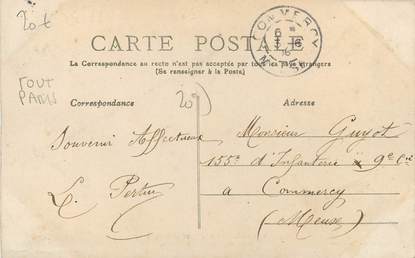 20t
CARTE POSTALE
La Correspondance au recto n'est pas acceptée par tous les pays étrangers
(Se renseigner à la Poste)
TOUT
PARIS
Correspondance
Adresse
Souvenir Affectueux
Monsieur Guyot
155e d'Infanterie 9e Cie
a Commercy
(Meuse)